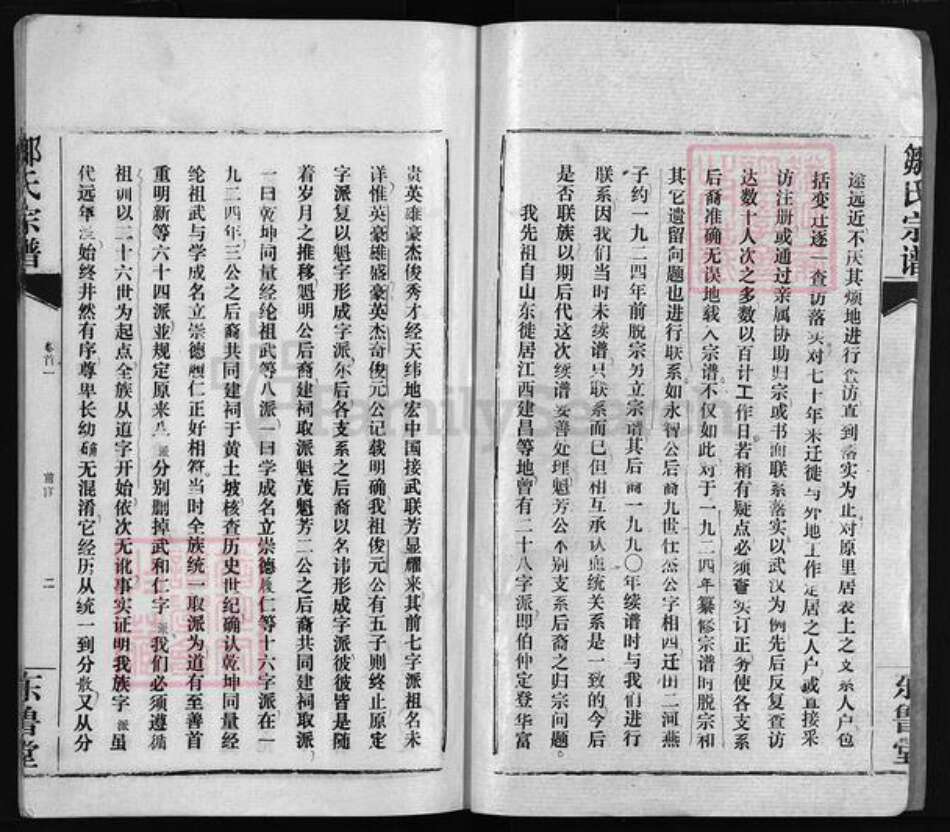 邹氏宗谱
东鲁堂
途远近不厌其烦地进行查访直到落实为止对原里居表上之文系人户包
括变迁逐一查访落实对七十年来迁徙与外地工作定居之人户或直接采
访注册或通过亲属协助归宗或书面联系落实以武汉为例先后反复查访
达数十人次之多数以百计工作日若稍有疑点必须查实订正务使各支系
后裔准确无误地载入宗谱。不仅如此对于一九二四年纂修宗谱时脱宗和
其它遗留问题也进行联系如永智公后裔九世仕杰公字相四迁田二河燕
子约一九二四年前脱宗另立宗谱其后裔一九九〇年续谱时与我们进行
联系因我们当时未续谱只联系而已但相互承认血统关系是一致的今后
是否联族以期后代这次续谱妥善处理魁芳公不别支系后裔之归宗问题。
我先祖自山东徙居江西建昌等地曾有二十八字派即伯仲定登华富
贵英雄豪杰俊秀才经天纬地宏中国接武联芳显耀来其前七字派祖名未
详惟英豪雄盛豪英杰奇俊元公记载明确我祖俊元公有五子则终止原定
字派复以魁字形成字派尔后各支系之后裔以名讳形成字派彼彼皆是随
着岁月之推移魁明公后裔建祠取派魁茂魁芳二公之后裔共同建祠取派
一曰乾坤同量经纶祖武等八派一曰学成名立崇德履仁等十六字派在一
九二四年三公之后裔共同建祠于黄土坡核查历史世纪确认乾坤同量经
纶祖武与学成名立崇德履仁正好相符。当时全族统一取派为道有至善首
重明新等六十四派并规定原来八派分别删掉武和仁字派我们必须遵循
祖训以二十六世为起点全族从道字开始依次无讹事实证明我族字派虽
代远年湮始终井然有序尊卑长幼确无混淆它经历从统一到分散又从分
邹氏宗谱
卷首一
二
东鲁堂
FamilySearch